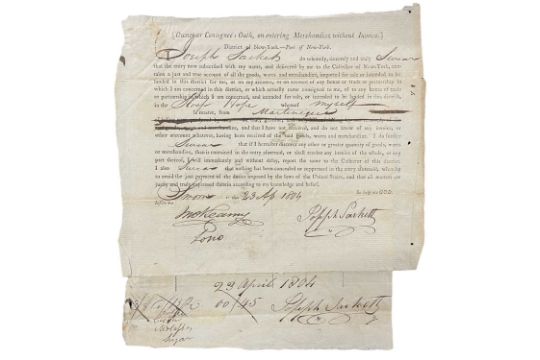 (Owner or Consignee's Oath, on entering Merchandize without Invoice.)
District of New-York.—Port of New-York.
I Joseph Sackett do solemnly, sincerely and truly Swear
that the entry now subscribed with my name, and delivered by me to the Collector of New-York, contains
a just and true account of all the goods, wares, and merchandize, imported for sale or intended to be
landed in this district for me, or on my account, or on account of any house of trade or partnership in
which I am concerned in this district, or which actually came consigned to me, or to any house of trade
or partnership in which I am concerned, and intended for sale, or intended to be landed in this district,
in the Sloop Hope whereof myself
is master, from Martinique
and that I have not received, and do not know of any invoice, or
other account whatever, having been received of the said goods, wares and merchandize. I do further
Swear that if I hereafter discover any other or greater quantity of goods, wares
or merchandize, than is contained in the entry aforesaid, or shall receive any invoice of the whole, or any
part thereof, I will immediately and without delay, report the same to the Collector of this district.
I also Swear that nothing has been concealed or suppressed in the entry aforesaid, whereby
to avoid the just payment of the duties imposed by the laws of the United States, and that all matters are
justly and truly expressed therein according to my knowledge and belief.
So help me GOD.
Sworn 23 Ap 1804
before me
Joseph Sackett
23 April 1804
60/45 Joseph Sackett
Molasses
Sugar